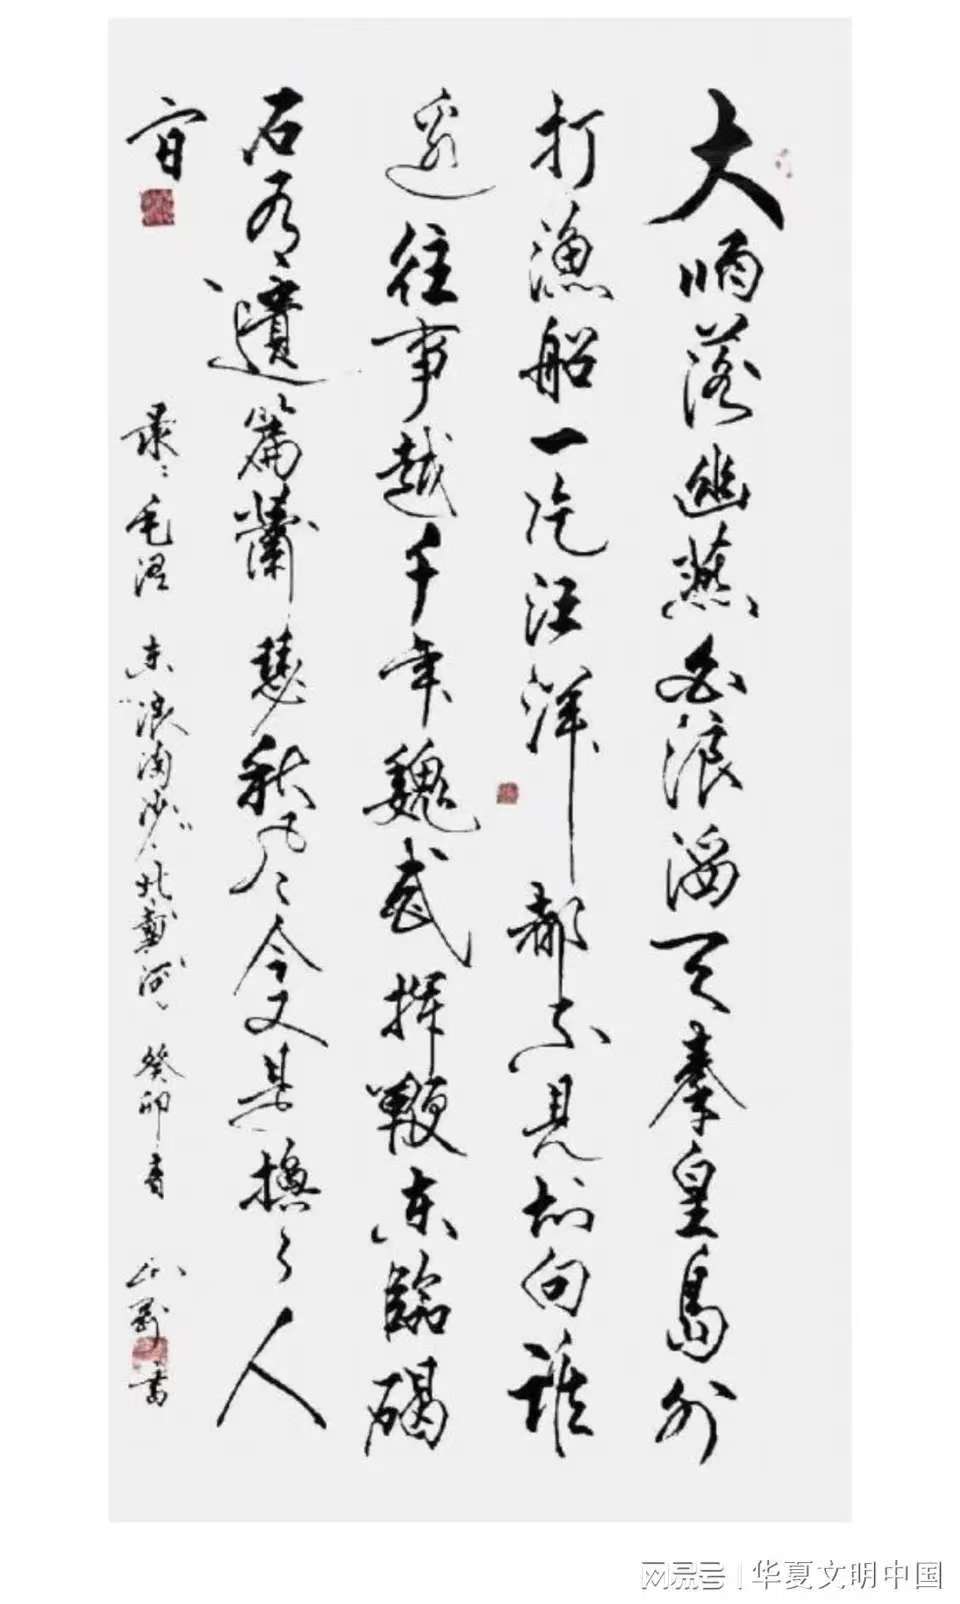 大雨落幽燕白浪滔天秦皇島外
打漁船一片汪洋都不見知向誰
邊往事越千年魏武揮鞭东臨碣
石有遺篇蕭瑟秋风今又是換了人
间
录毛泽东"浪淘沙·北戴河"癸卯春 书
网易号 | 华夏文明中国